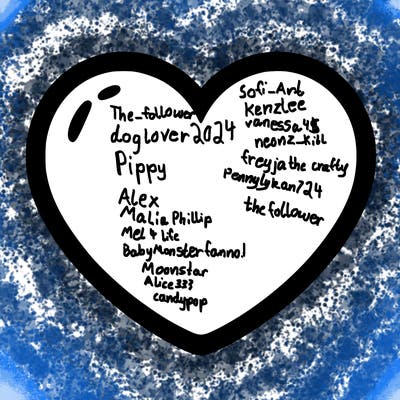 The_follower
doglover2024
Pippy
Alex
Malia Phillip
Mel 4 life
BabyMonsterfanno.1
Moonstar
Alice333
candypop
Sofi_Art
Kenzlee
vanessa4$
freyja the crafty
the follower